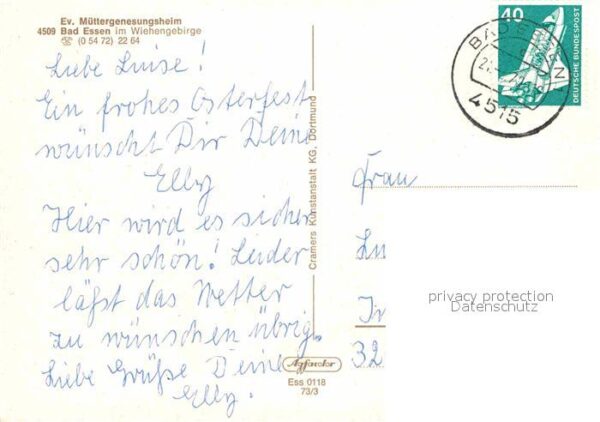 Ev. Müttergenesungsheim
4509 Bad Essen im Wiehengebirge
☎ (0 54 72) 22 64
Liebe Luise!
Ein frohes Osterfest
wünscht Dir Deine
Elly
Hier wird es sicher
sehr schön! Leider
läßt das Wetter
zu wünschen übrig.
Liebe Grüße Deine
Elly.
Cramers Kunstanstalt KG, Dortmund
Agfacolor
Ess 0118
73/3
40
DEUTSCHE BUNDESPOST
BAD ESSEN 1
4515
Frau
Lu
32
privacy protection
Datenschutz